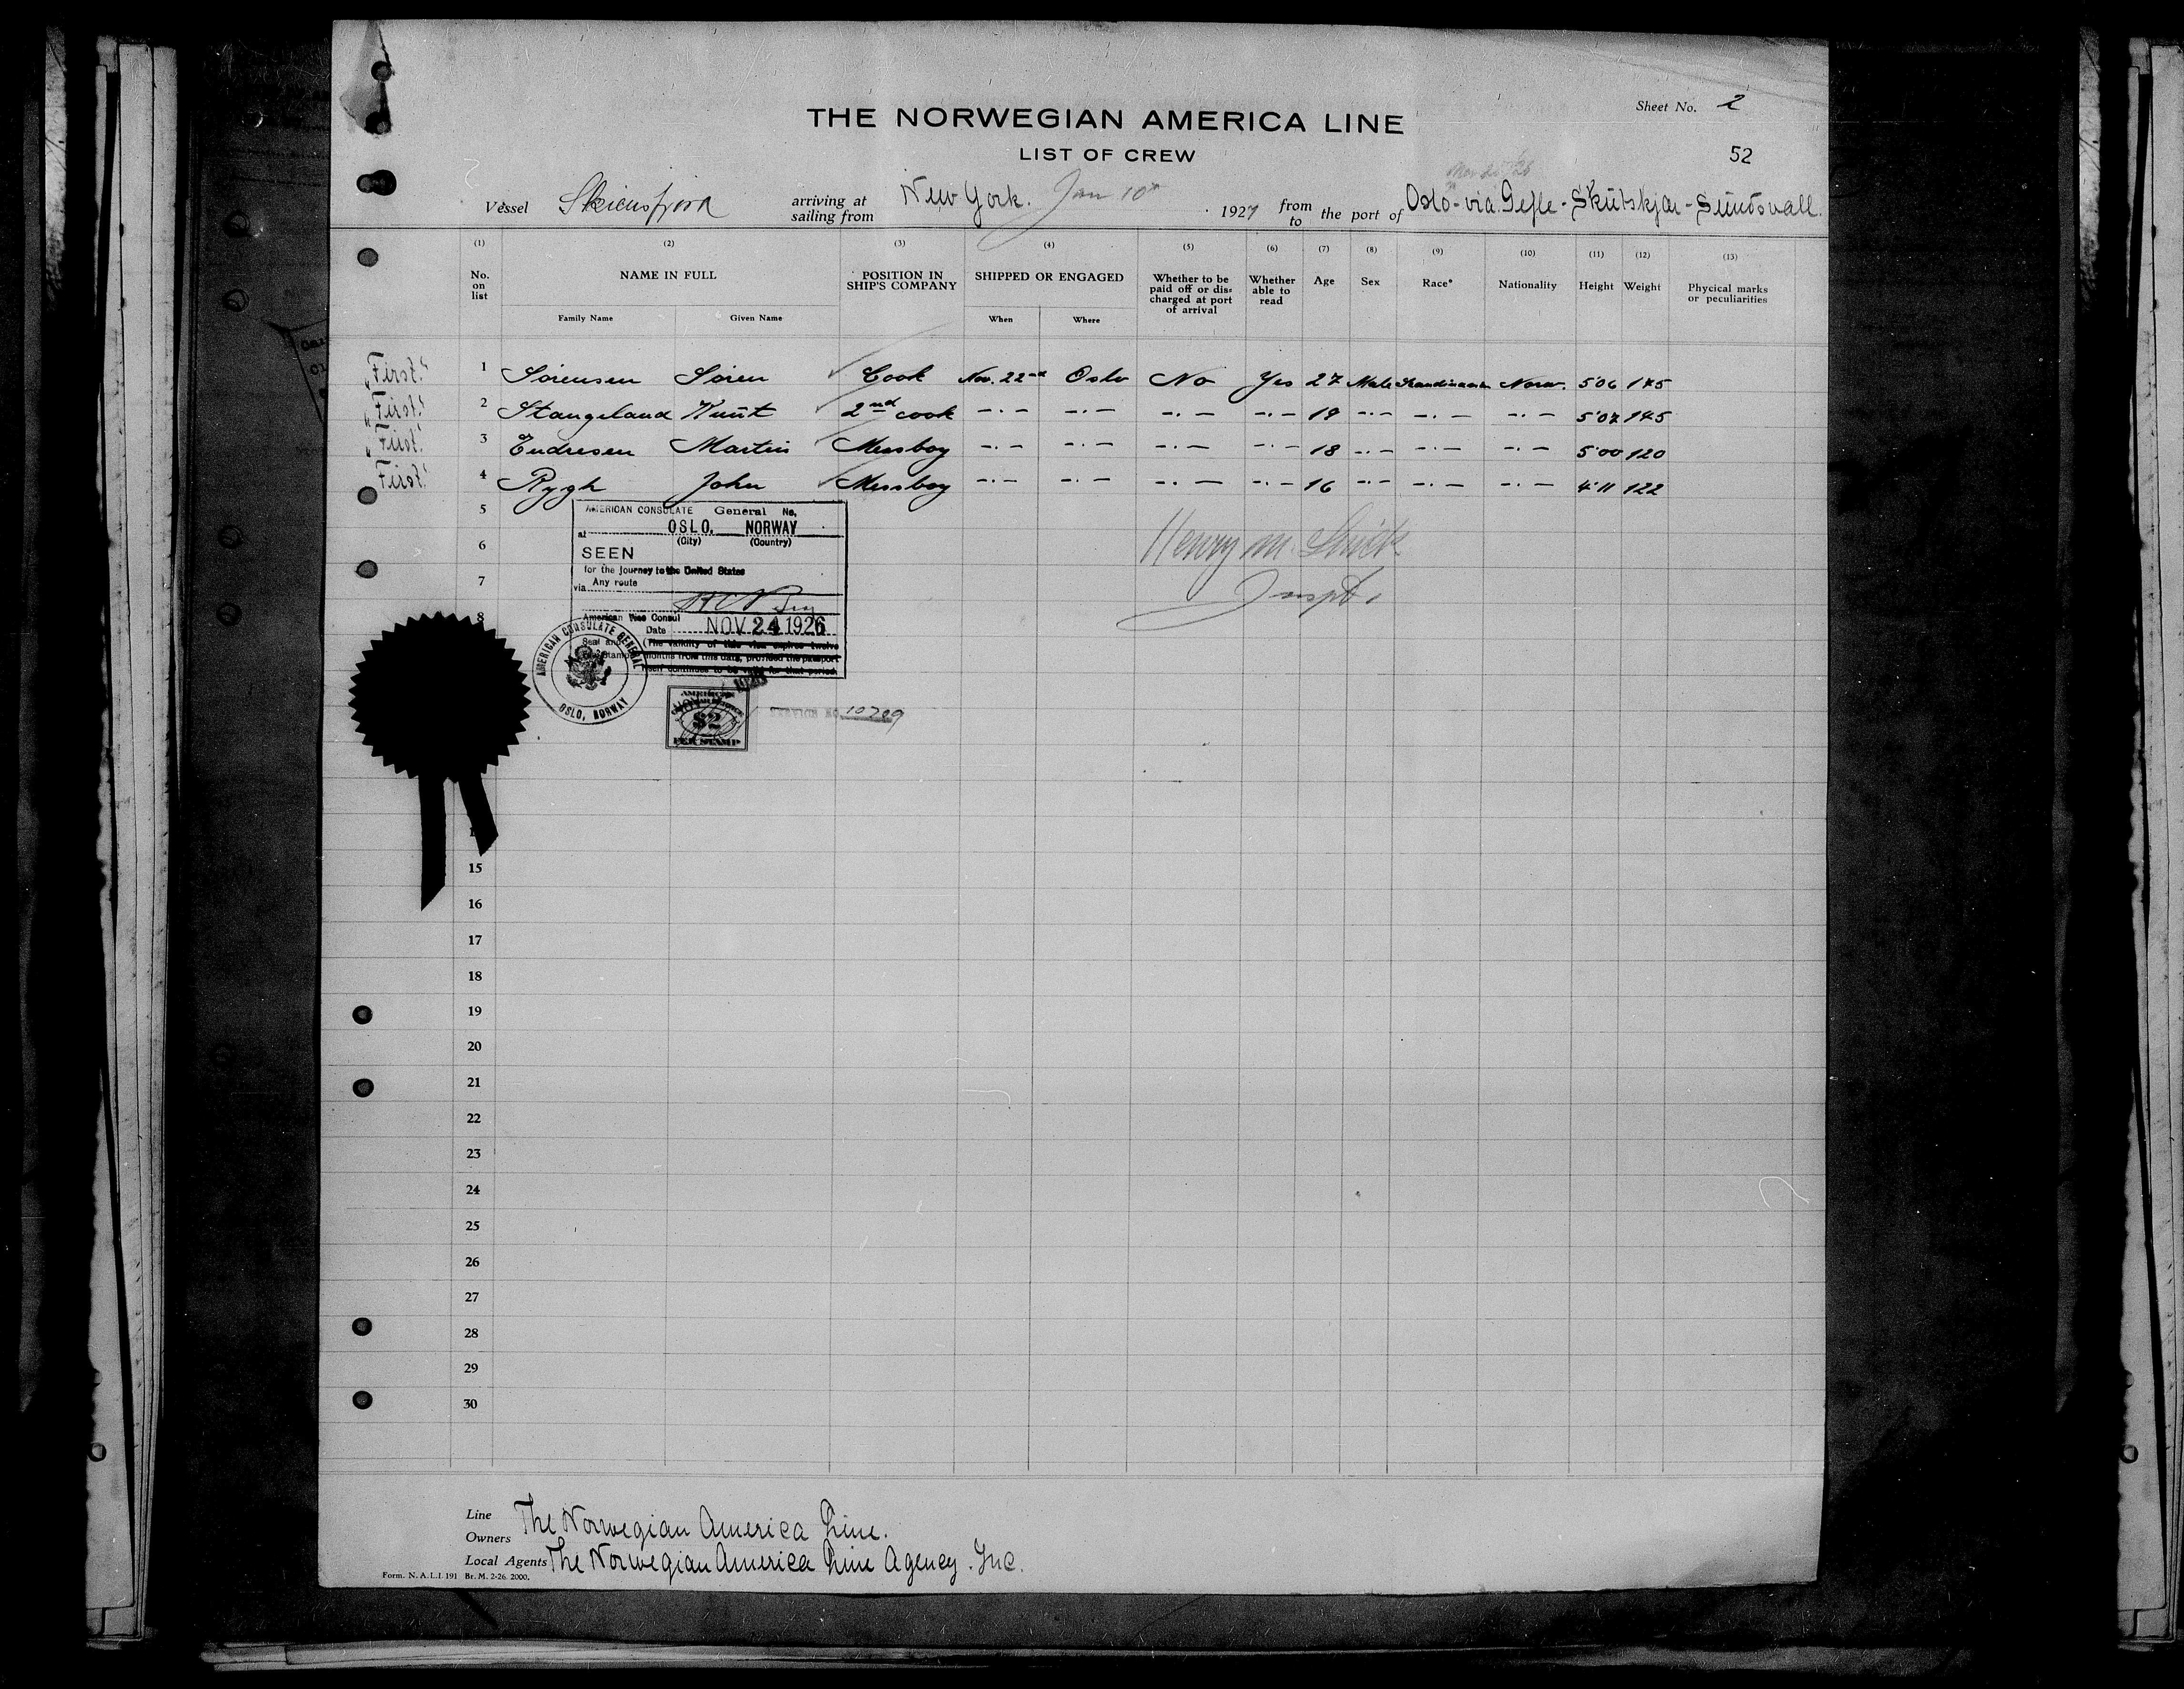 Sheet No. 2
THE NORWEGIAN AMERICA LINE
LIST OF CREW
52
Vessel Skiensfjord arriving at sailing from New York. Jan 10th 1927 from to the port of Oslo - via Gefle - Skutskjær - Sundsvall.
(1) (2) (3) (4) (5) (6) (7) (8) (9) (10) (11) (12) (13)
No. on list NAME IN FULL POSITION IN SHIP'S COMPANY SHIPPED OR ENGAGED Whether to be paid off or dis- charged at port of arrival Whether able to read Age Sex Race* Nationality Height Weight Phycical marks or peculiarities
Family Name Given Name When Where
"First" 1 Sörensen Sören Cook Nov. 22nd Oslo No Yes 27 Male Scandinavian Norw. 5'06 175
"First" 2 Stangeland Knut 2nd cook -.- -.- -.- -.- 19 -.- -.- -.- 5'07 145
"First" 3 Endresen Martin Messboy -.- -.- -.- -.- 18 -.- -.- -.- 5'00 120
"First" 4 Rygh John Messboy -.- -.- -.- -.- 16 -.- -.- -.- 4'11 122
5
AMERICAN CONSULATE General No.
at OSLO, NORWAY
(City) (Country)
6
SEEN
for the journey to the United States
7
via Any route
Henry M.
Inspt.
8
American Vice Consul
Date NOV 24 1926
Seal and
Stamp
(The validity of this visa expires twelve
months from this date, provided the passport
itself continues to be valid for that period.
AMERICAN CONSULATE GENERAL
OSLO, NORWAY
AMERICAN
$2
FEE STAMP
10789
15
16
17
18
19
20
21
22
23
24
25
26
27
28
29
30
Line The Norwegian America Line.
Owners
Local Agents The Norwegian America Line Agency. Inc.
Form. N. A. L. I. 191 Br. M. 2-26. 2000.